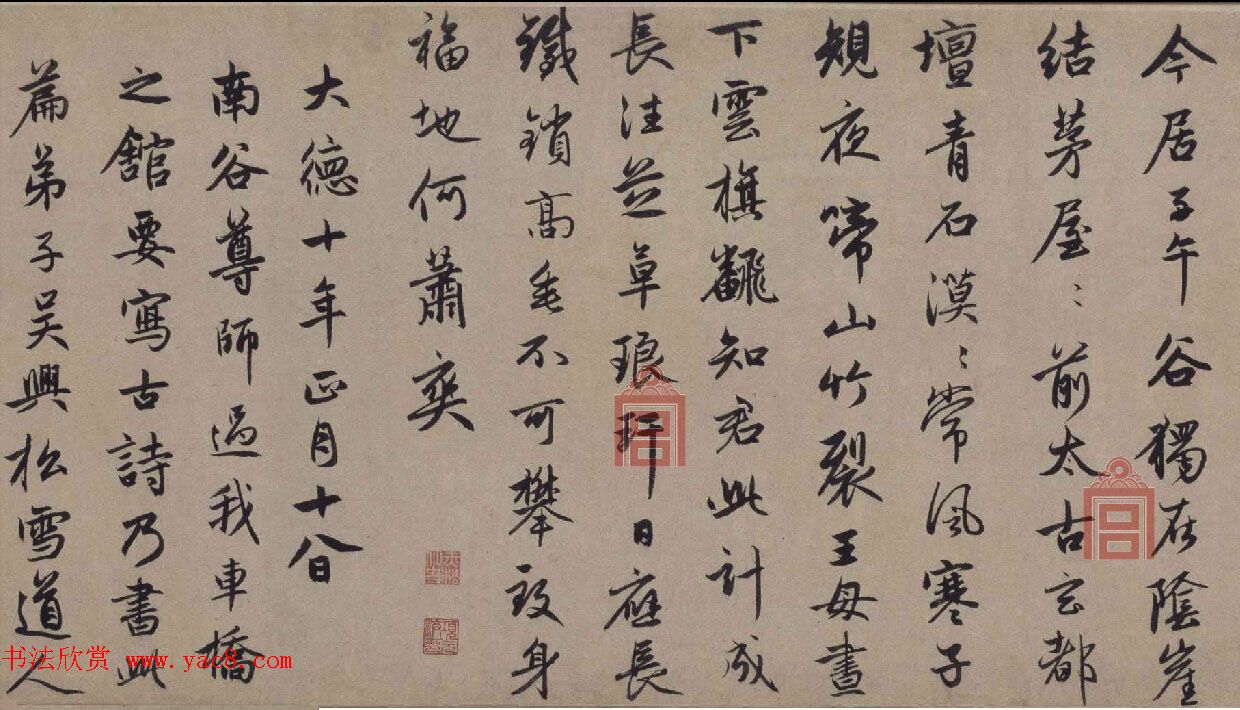 今居子午谷獨在陰崖
結茅屋〻前太古玄都
壇青石漠〻常風寒子
規夜啼山竹裂王母晝
下雲旗飜知君此計成
長往芝草琅玕日應長
鐵鎖高垂不可攀致身
福地何蕭爽
大德十年正月十八日
南谷尊師過我車橋
之舘要寫古詩乃書此
篇弟子吳興松雪道人
书法欣赏 www.yac8.com